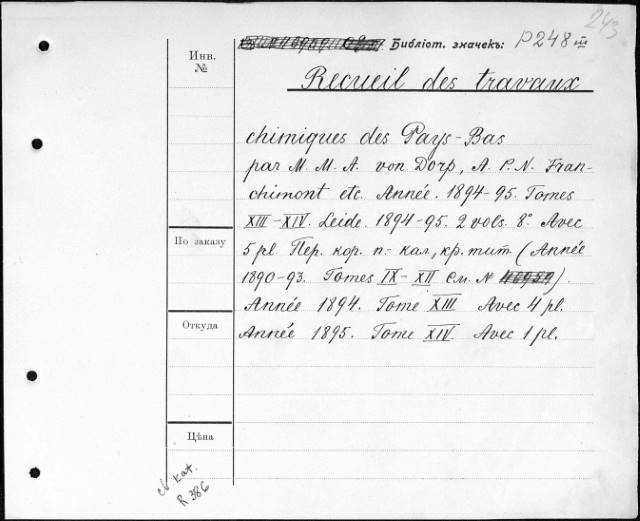 243
Библіот. значекъ: P248 III
Инв.
№
Recueil des travaux
chimiques des Pays-Bas
par M. M. A. von Dorp, A. P. N. Fran-
chimont etc. Année. 1894-95. Tomes
XIII-XIV. Leide. 1894-95. 2 vols. 8°. Avec
По заказу
5 pl. Пер. кор. п.-кал., кр. тит. (Année
1890-93. Tomes IX-XII См. №).
Année 1894. Tome XIII Avec 4 pl.
Откуда
Année 1895. Tome XIV. Avec 1 pl.
Цѣна
N кат.
R 386